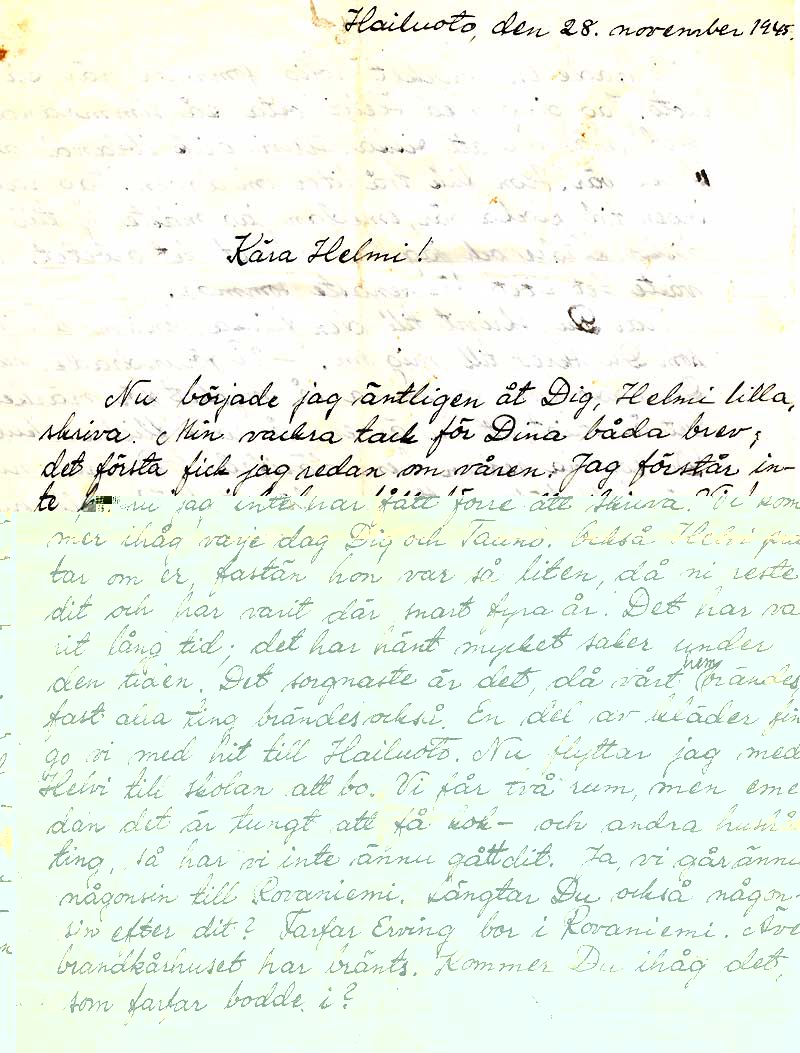 Hailuoto, den 28. november 1945.
Kära Helmi!
Nu började jag äntligen åt Dig, Helmi lilla,
skriva. Min vackra tack för Dina båda brev;
det första fick jag redan om våren. Jag förstår in-
te nu jag inte har fått förre att skriva. Vi kom
mer ihåg varje dag Dig och Tauno. Också Helvi pra
tar om er, fastän hon var så liten, då ni reste
dit och har varit där snart fyra år. Det har va
rit lång tid; det har hänt mycket saker under
den tiden. Det sorgnaste är det, då vårt hem brändes
fast alla ting brändes också. En del av kläder fin
go vi med hit till Hailuoto. Nu flyttar jag med
Helvi till skolan att bo. Vi får två rum, men eme
dan det är tungt att få kok- och andra hushå
ting, så har vi inte ännu gått dit. Ja, vi går ännu
någonsin till Rovaniemi. Längtar Du också någon-
sin efter dit? Farfar Erving bor i Rovaniemi. Äve
brandkårhuset har bränts. Kommer Du ihåg det,
som farfar bodde i?